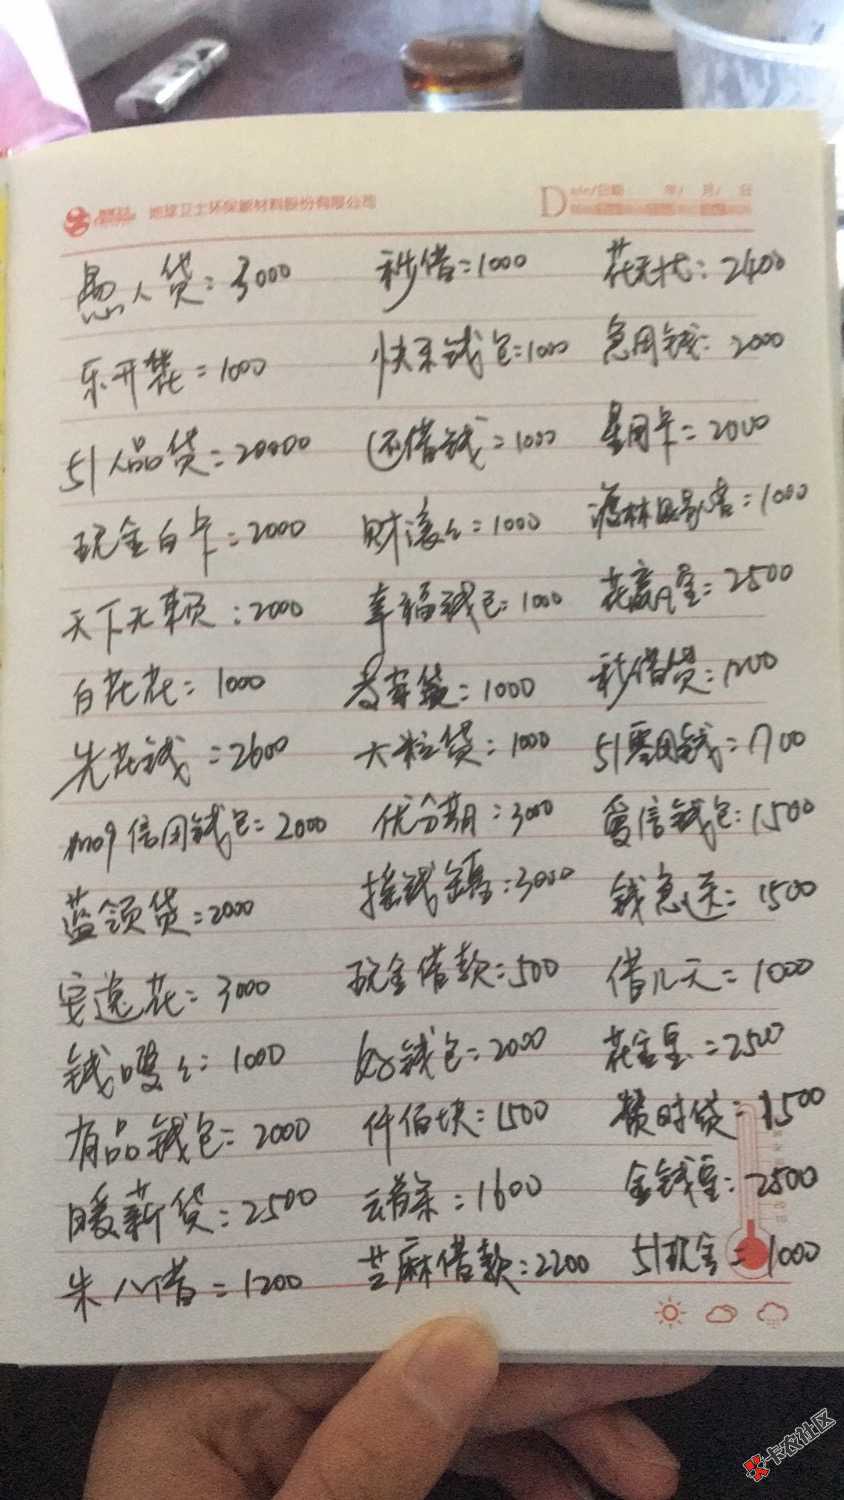 地球卫士环保新材料股份有限公司
D ate/日期 年/ 月/ 日
愚人贷：3000 秒借=1000 花无忧：2400
乐开花=1000 快乐钱包：1000 急用钱：2000
51人品贷：20000 还借钱=1000 星用卡=2000
现金白卡：2000 财滚滚：1000 =1000
天下无赖：2000 幸福钱包：1000 2500
白花花=1000 贷=1000 秒借贷：1200
先花钱=2600 大粒贷：1000 51零用钱=1700
mo9信用钱包：2000 优分期：3000 爱信钱包：1500
蓝领贷：2000 摇钱罐：3000 钱急送：1500
安逸花：3000 现金借款：500 借几天=1000
钱嗖嗖：1000 好钱包：2000 花金皇=2500
有品钱包：2000 仟佰块：1500 时贷=1500
暖薪贷：2500 =1600 金钱皇：2500
朱八借=1200 芝麻借款：2200 51现金=1000
卡农社区